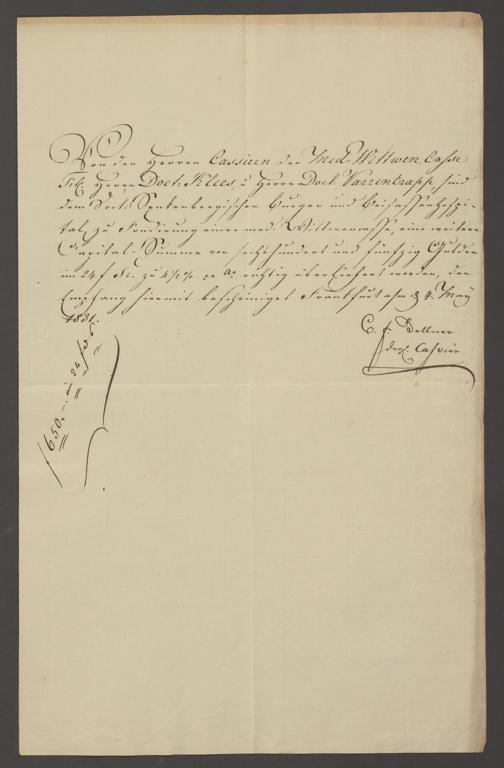 8
Von den Herren Cassiern der Med. Wittwen Casse
Tit. Herrn Doct. Klees, u Herrn Doct. Varrentrapp, sind
dem Doct. Senkenbergischen Burger und Beisassenhospi-
tal, zu Fundirung einer med. Wittwencasse, eine weitere
Capital-Summe von sechshundert und fünfzig Gulden
im 24 f Fs. zu 4½ % richtig überliefert worden, der
Empfang hiermit bescheiniget Frankfurt a/m d 4. May
1831.
C. F. Bellner
Cassier
f 650.-. im 24 f Fs